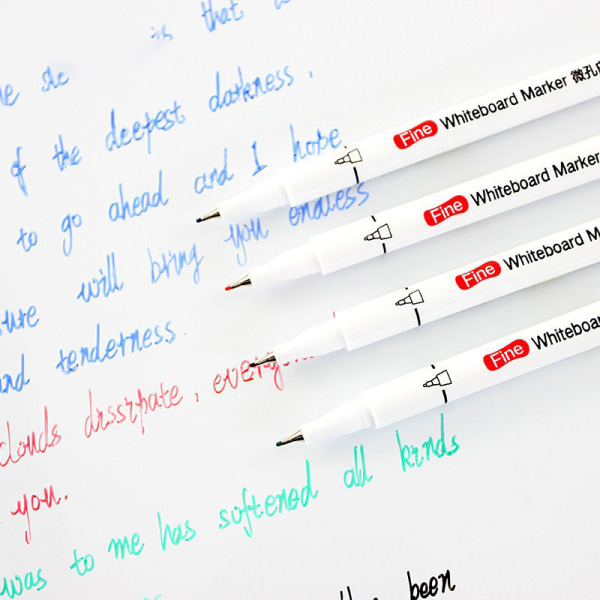 is that
of the deepest darkness.
to go ahead and I hope
will bring you endless
and tenderness.
clouds dissipate, every
you.
was to me has softened all kinds
been
Fine Whiteboard Marker 微孔
Fine Whiteboard Marker
Fine Whiteboard M
Fine Whiteboar